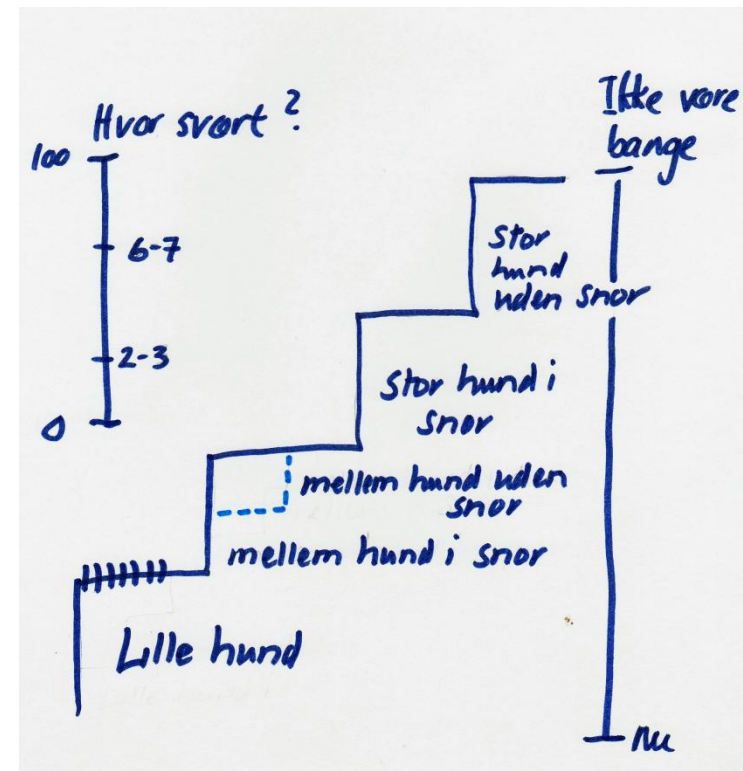 Hvor svært?
100
6-7
2-3
0
Ikke være
bange
stor
hund
uden snor
Stor hund i
snor
mellem hund uden
snor
mellem hund i snor
Lille hund
nu